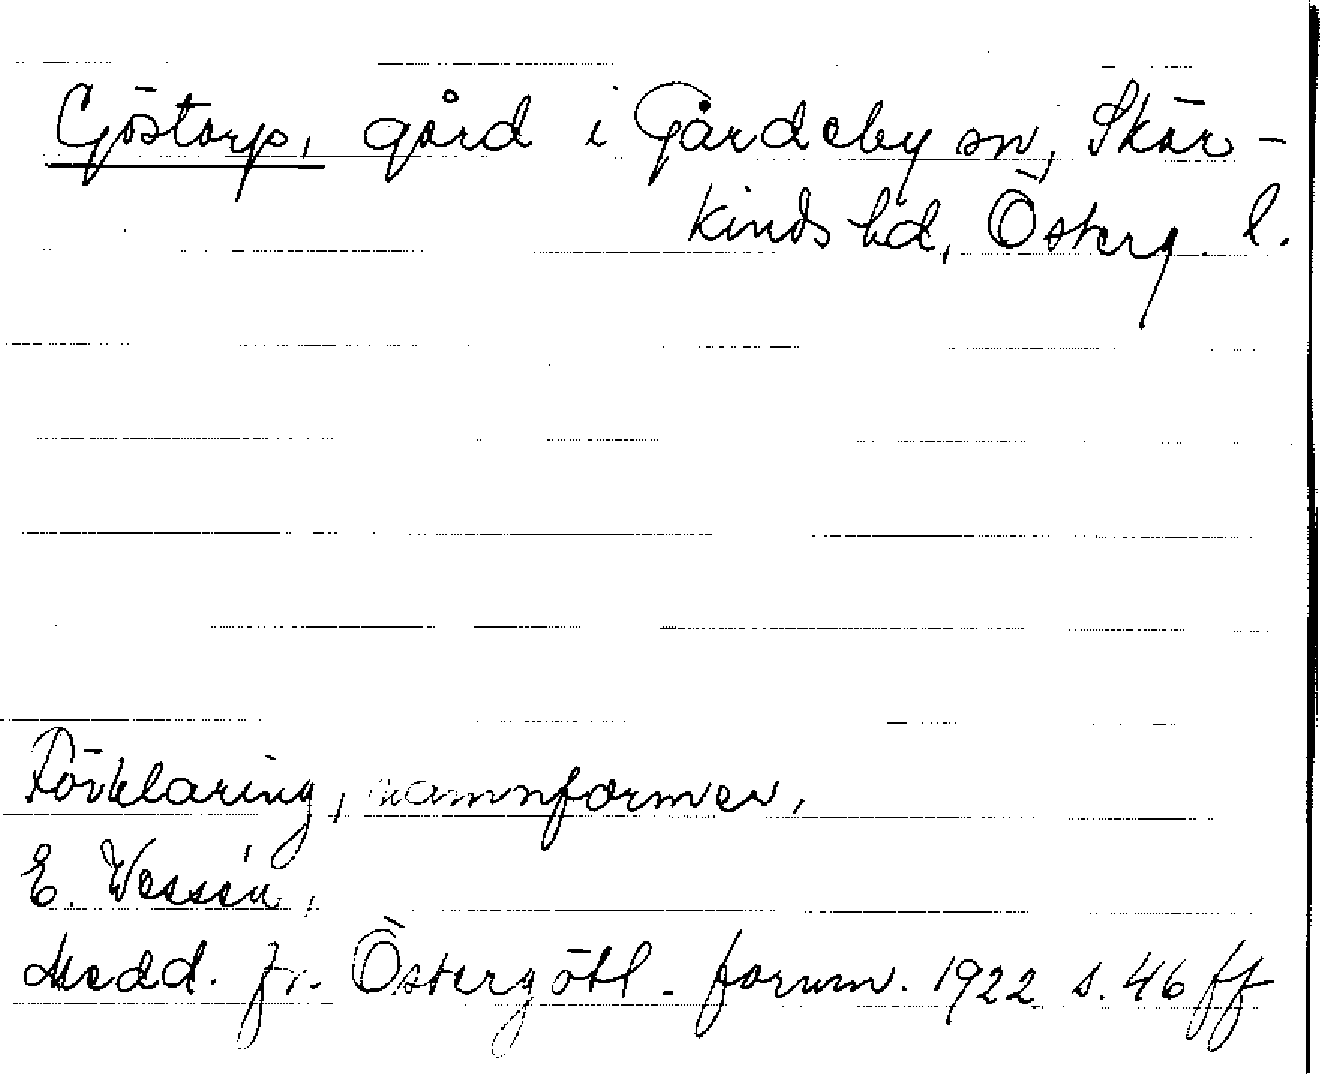 Göstorp, gård i Gårdeby sn, Skär-
kinds hd, Österg. l.
Förklaring, namnformer,
E. Wessén,
Medd. fr. Östergötl. fornm. 1922 s. 46 ff